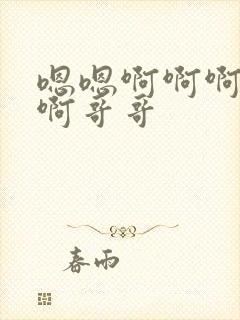 嗯嗯啊啊啊
啊哥哥
春雨